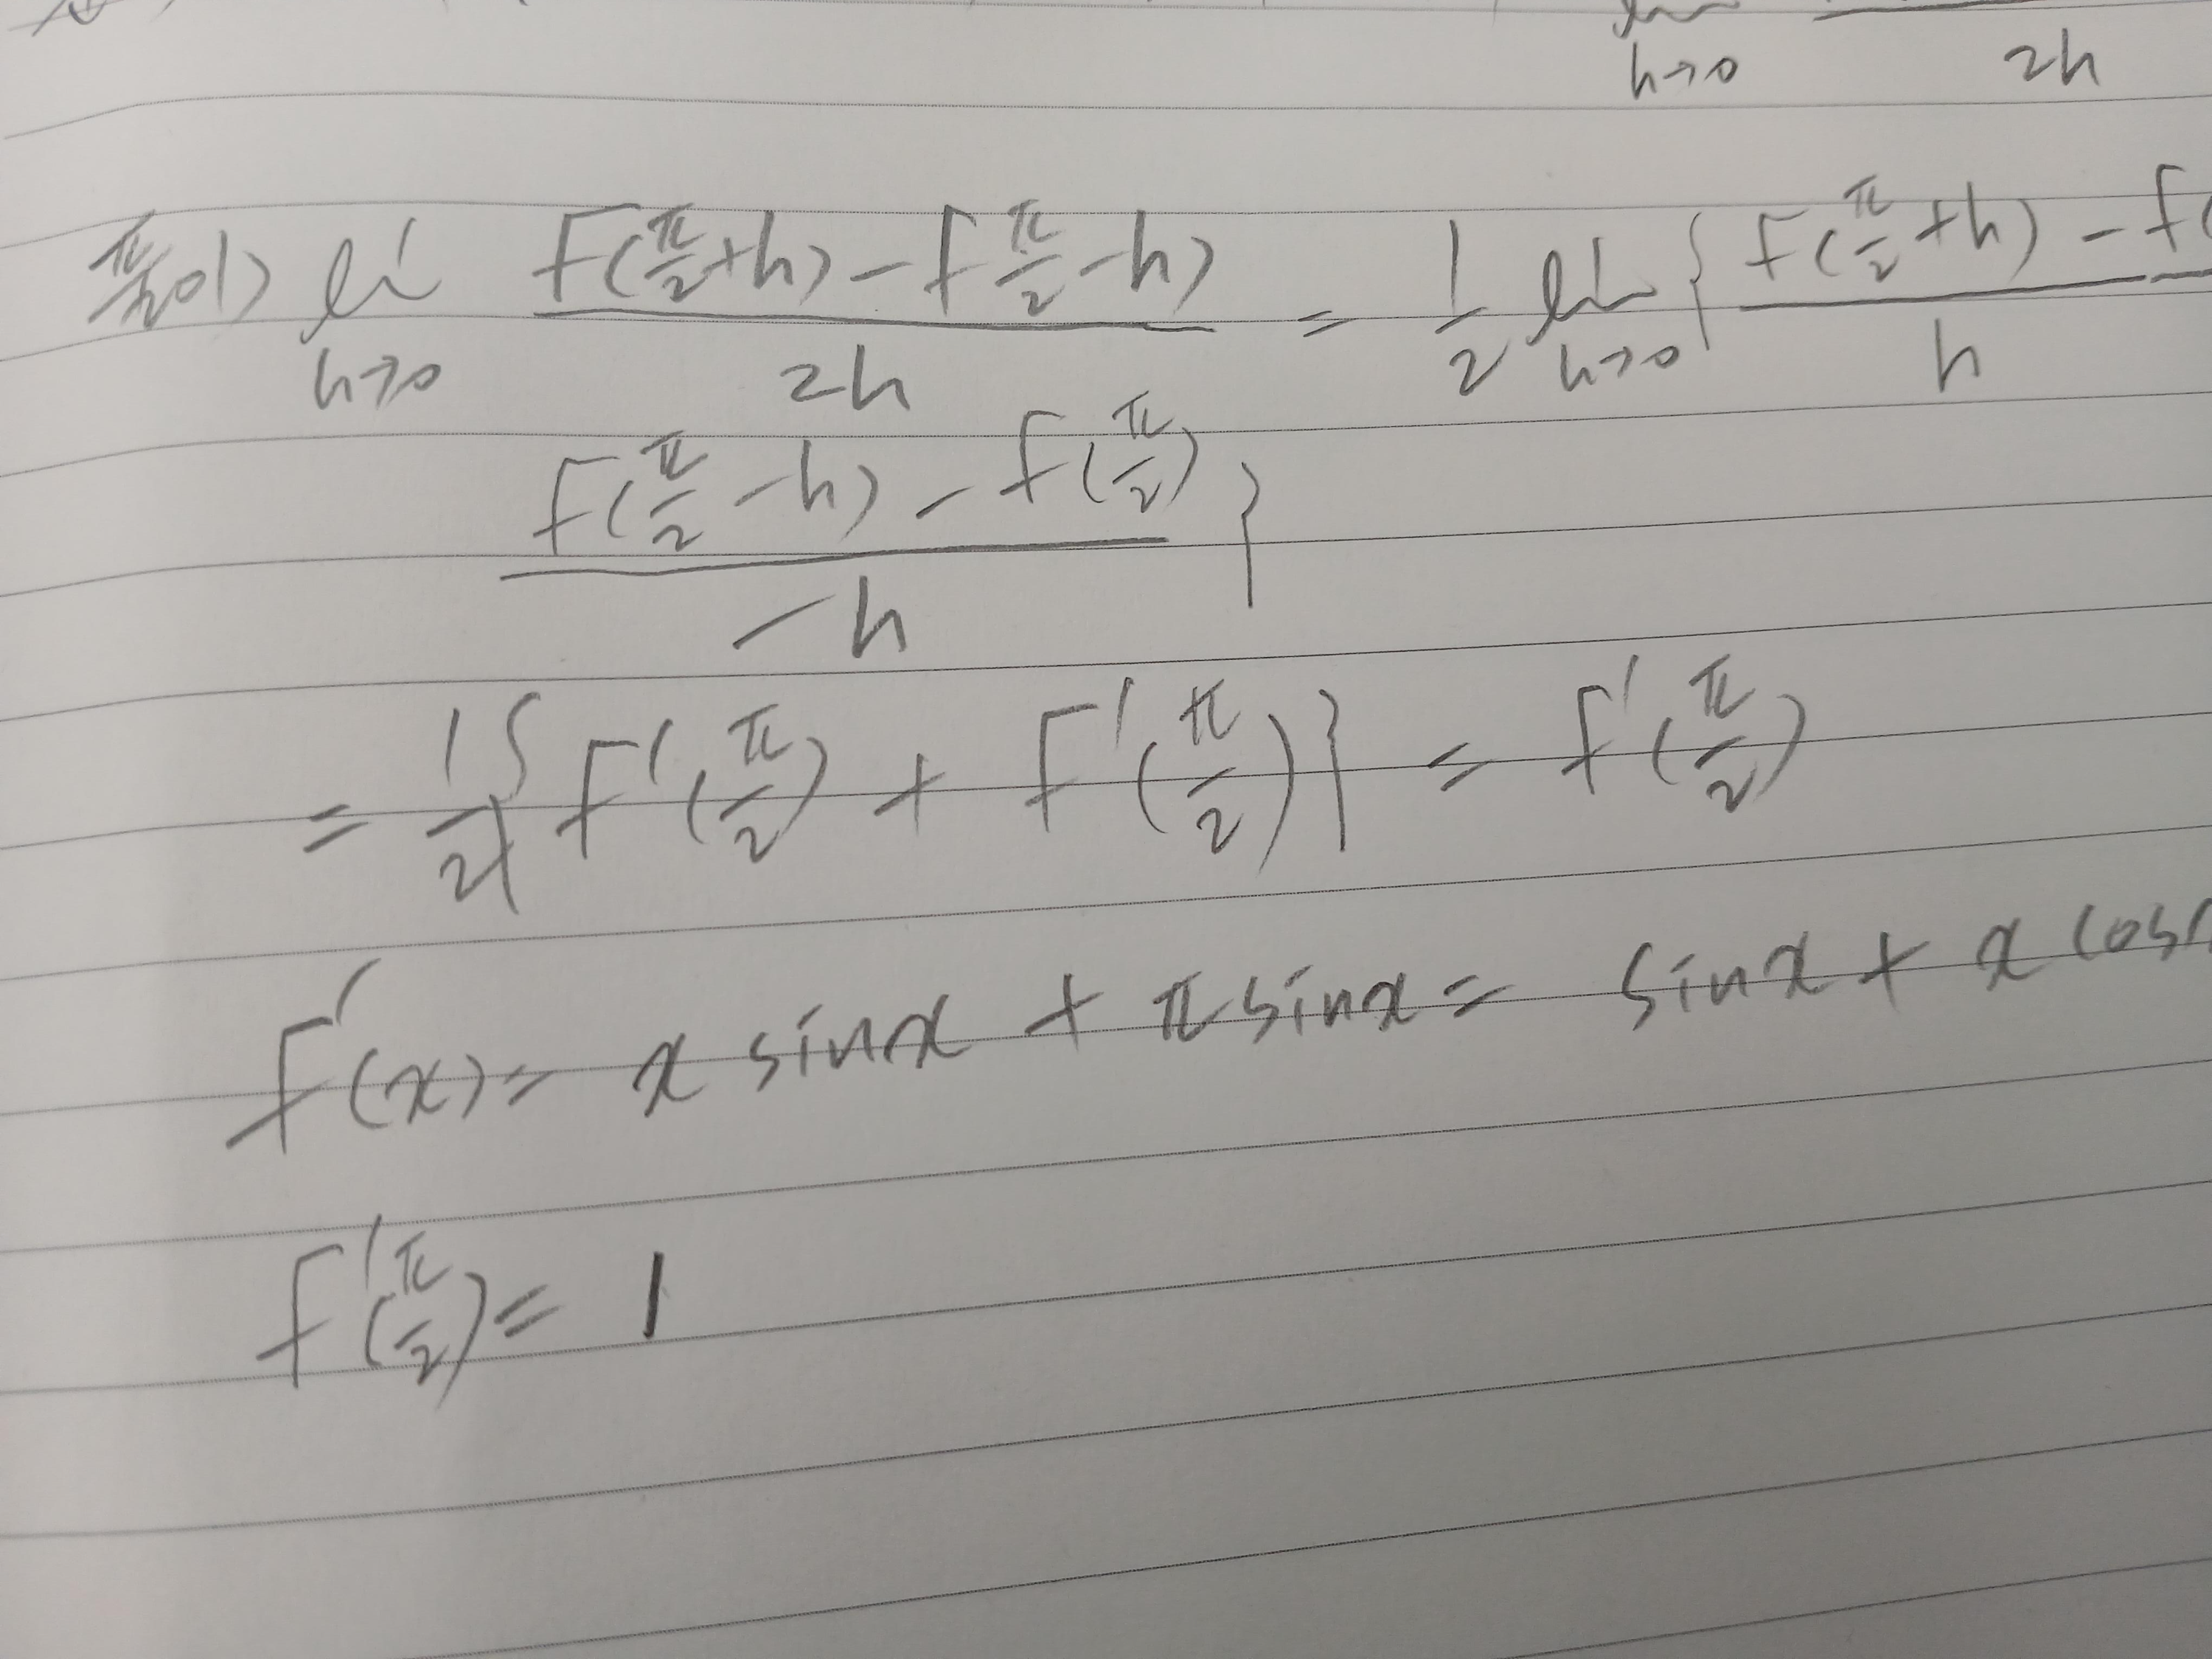 h→0 2h
풀이) lim h→0 f(π/2+h)-fπ/2-h) / 2h = 1/2 lim h→0 { f(π/2+h)-f( / h
f(π/2-h)-f(π/2) / -h }
= 1/2{f'(π/2)+f'(π/2)} = f'(π/2)
f'(x)= x sinx + π sinx = sinx + x cos
f'(π/2)= 1